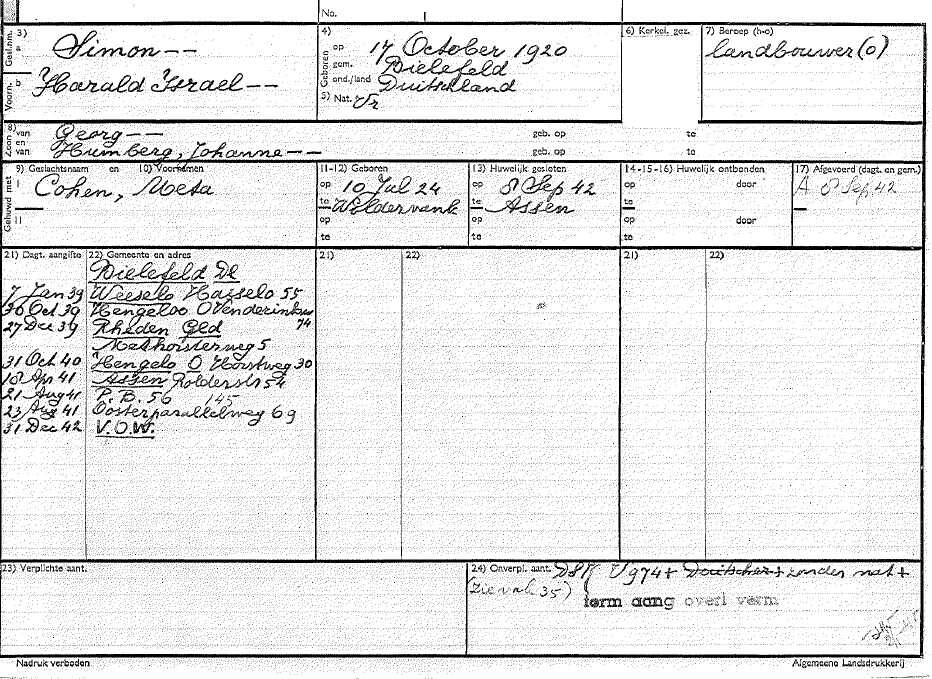 No.
Gesl.nm. 3) a Simon--
Voorn. b Harald Israel--
4) Geboren op 17 October 1920
gem. Bielefeld
ond./land Duitschland
5) Nat. Vr
6) Kerkel. gez.
7) Beroep (h-o)
landbouwer (o)
8) Zoon van Georg-- geb. op te
en van Humberg, Johanne-- geb. op te
Gehuwd met 9) Geslachtsnaam en 10) Voornamen 11-12) Geboren 13) Huwelijk gesloten 14-15-16) Huwelijk ontbonden 17) Afgevoerd (dagt. en gem.)
I Cohen, Meta op 10 Jul 24 op 8 Sep 42 op door A 8 Sep 42
te Wildervank te Assen te
II op op op door
te te te
21) Dagt. aangifte 22) Gemeente en adres 21) 22) 21) 22)
Bielefeld Dl
7 Jan 39 Weeselo Hasselo 55
30 Oct 39 Hengeloo O
74
27 Dec 39 Rheden Gld
5
31 Oct 40 Hengelo O Horstweg 30
18 Apr 41 Assen Rolderstr 54
21 Aug 41 P.B. 56 145
23 Aug 41 Oosterparallelweg 69
31 Dec 42 V.O.W.
23) Verplichte aant.
24) Onverpl. aant. V 974 + Duitscher + zonder nat +
(Zie vak 35)
term aang overl verm
Nadruk verboden Algemeene Landsdrukkerij